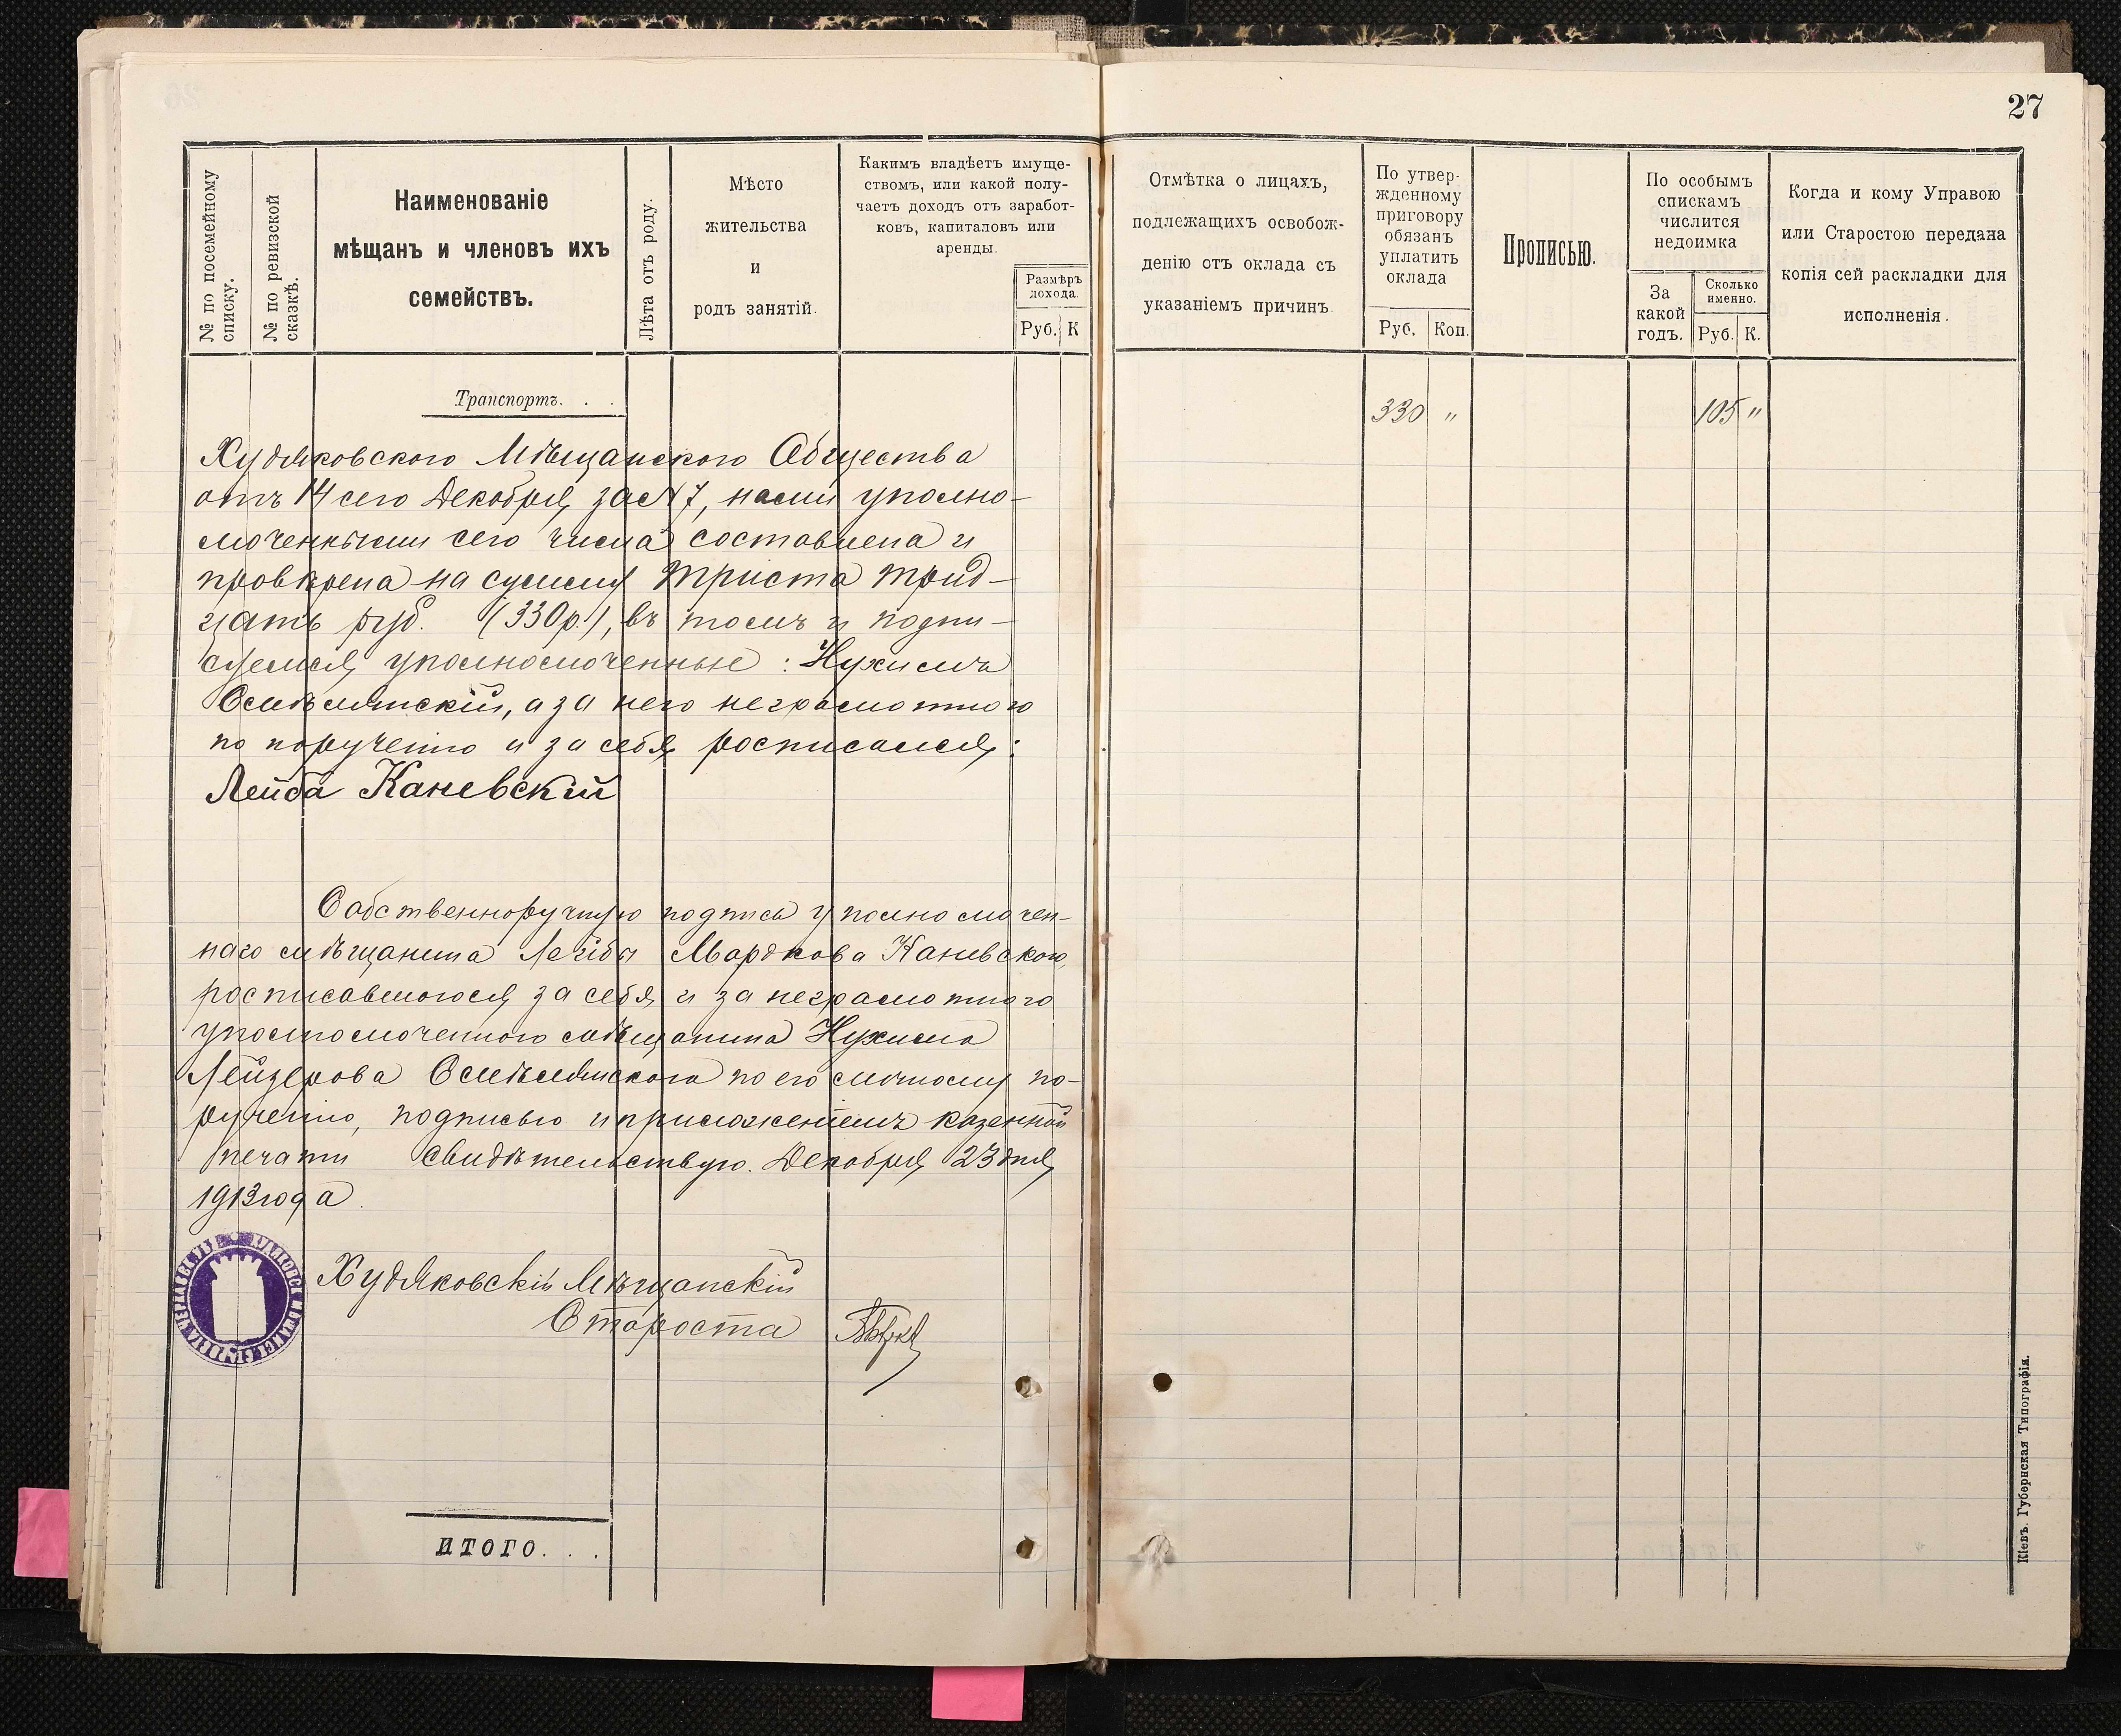 27
№ по посемейному
списку.
№ по ревизской
сказкѣ.
Наименованіе
мѣщанъ и членовъ ихъ
семействъ.
Лѣта отъ роду.
Мѣсто
жительства
и
родъ занятій.
Какимъ владѣетъ имуще-
ствомъ, или какой полу-
чаетъ доходъ отъ заработ-
ковъ, капиталовъ или
аренды.
Размѣръ
дохода.
Руб. К
Отмѣтка о лицахъ,
подлежащихъ освобож-
денію отъ оклада съ
указаніемъ причинъ
По утвер-
жденному
приговору
обязанъ
уплатить
оклада
Руб. Коп.
Прописью.
По особымъ
спискамъ
числится
недоимка
За
какой
годъ.
Сколько
именно.
Руб. К.
Когда и кому Управою
или Старостою передана
копія сей раскладки для
исполненія.
Транспортъ. . .
330 "
105 "
Худяковского Мѣщанского Общества
отъ 14 сего Декабря за № 7, нами уполно-
моченными сего числа составлена и
провѣрена на сумму триста трид-
цать руб. (330 р.), въ томъ и подпи-
суемся уполномоченные: Нухимъ
Смѣлянскій, а за него неграмотного
по порученію и за себя росписался:
Лейба Каневскій
Собственноручную подпись уполномочен-
наго мѣщанина Лейбы Мордкова Каневского,
росписавшогося за себя и за неграмотного
уполномоченного мѣщанина Нухима
Лейзерова Смѣлянского по его личному по-
рученію, подписью и приложеніемъ казенной
печати свидѣтельствую. Декабря 23 дня
1913 года.
Худяковскій Мѣщанскій
Староста
ИТОГО. . .
Кіевъ. Губернская Типографія.